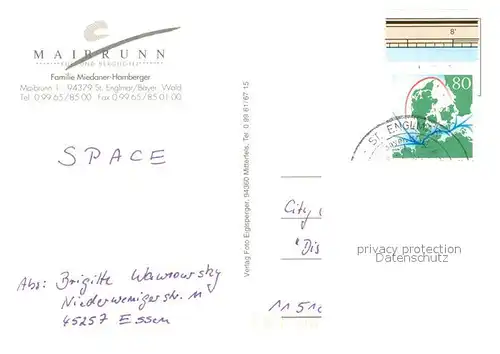 MAIBRUNN
KUR UND BERGHOTEL
Familie Miedaner-Hornberger
Maibrunn 1 94379 St. Englmar/Bayer. Wald
Tel 0 99 65/85 00 Fax 0 99 65/85 01 00
SPACE
Abs: Brigitte Wawrowsky
Niederwenigerstr. 11
45257 Essen
Verlag Foto Erglsperger, 94360 Mitterfels, Tel. 0 99 61/67 15
8°
80
ST. ENGLM
City
"Dis
privacy protection
Datenschutz
11510